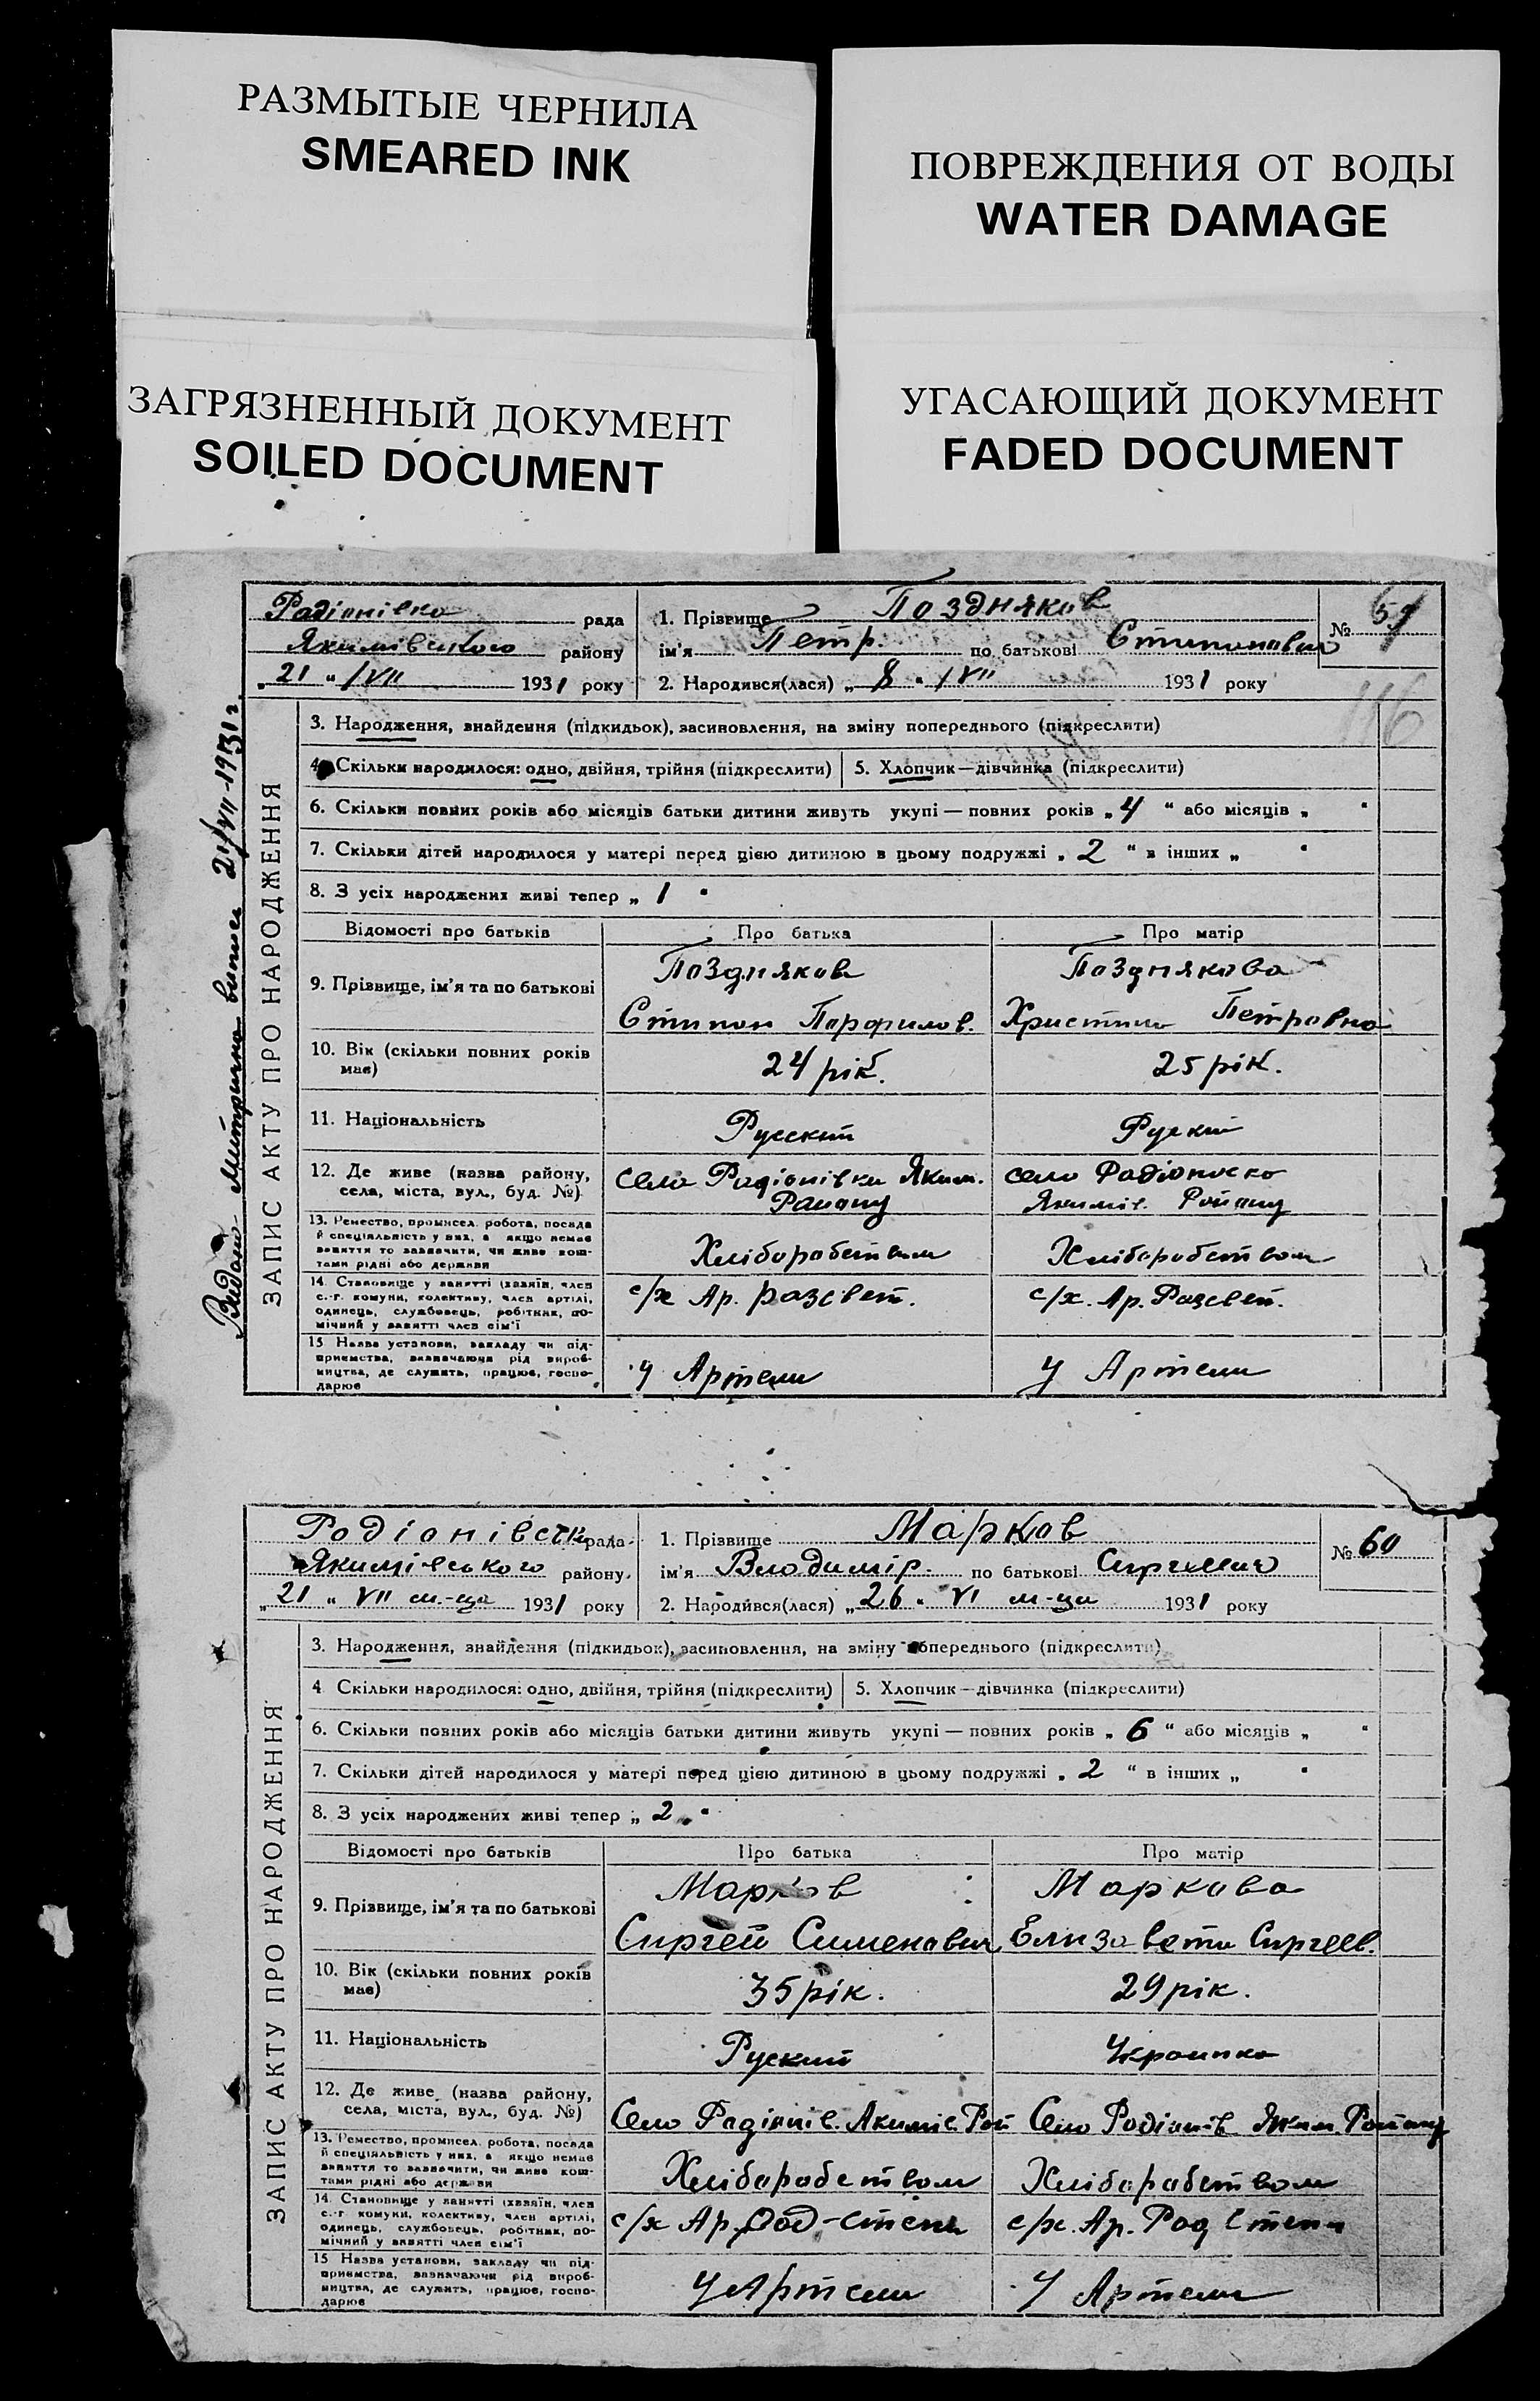 РАЗМЫТЫЕ ЧЕРНИЛА
SMEARED INK
ПОВРЕЖДЕНИЯ ОТ ВОДЫ
WATER DAMAGE
ЗАГРЯЗНЕННЫЙ ДОКУМЕНТ
SOILED DOCUMENT
УГАСАЮЩИЙ ДОКУМЕНТ
FADED DOCUMENT
Радіонівка рада
Якимівського району
„21“ /VII 1931 року
1. Прізвище Поздняков
ім'я Петр. по батькові Стипанович
2. Народився(лася) „8“ /VII 1931 року
№ 59
116
Видано митрична виписа 21/VII-1931 г.
ЗАПИС АКТУ ПРО НАРОДЖЕННЯ
3. Народження, знайдення (підкидьок), засиновлення, на зміну попереднього (підкреслити)
4. Скільки народилося: одно, двійня, трійня (підкреслити) 5. Хлопчик—дівчинка (підкреслити)
6. Скільки повних років або місяців батьки дитини живуть укупі — повних років „4“ або місяців „ “
7. Скільки дітей народилося у матері перед цією дитиною в цьому подружжі „2“ в інших „ “
8. З усіх народжених живі тепер „1“
Відомості про батьків Про батька Про матір
9. Прізвище, ім'я та по батькові
Поздняков
Стипан Парфилов.
Позднякова
Христина Петровна
10. Вік (скільки повних років має)
24 рік.
25 рік.
11. Національність
Русский
Руский
12. Де живе (назва району, села, міста, вул., буд. №)
село Радіонівка Яким. Району
село Радіонівка Якимів. Району
13. Ремество, промисел, робота, посада й спеціяльність у них, а якщо немає заняття то зазначити, чи живе коштами рідні або держави
Хліборобством
Хліборобством
14. Становище у занятті (хазяїн, член с.-г. комуни, колективу, член артілі, одинець, службовець, робітник, помічний у занятті член сім'ї
с/х Ар. разсвет.
с/х. Ар. Разсвет.
15. Назва установи, закладу чи підприємства, зазначаючи рід виробництва, де служить, працює, господарює
у Артели
у Артели
Родіонівська рада
Якимівського району
„21“ VII м-ця 1931 року
1. Прізвище Марков
ім'я Влодимір. по батькові Сиргеевич
2. Народився(лася) „26“ VI м-ця 1931 року
№ 60
ЗАПИС АКТУ ПРО НАРОДЖЕННЯ
3. Народження, знайдення (підкидьок), засиновлення, на зміну попереднього (підкреслити)
4 Скільки народилося: одно, двійня, трійня (підкреслити) 5. Хлопчик—дівчинка (підкреслити)
6. Скільки повних років або місяців батьки дитини живуть укупі — повних років „6“ або місяців „ “
7. Скільки дітей народилося у матері перед цією дитиною в цьому подружжі „2“ в інших „ “
8. З усіх народжених живі тепер „2“
Відомості про батьків Про батька Про матір
9. Прізвище, ім'я та по батькові
Марков
Сиргей Сименович
Маркова
Елизавета Сиргеев.
10. Вік (скільки повних років має)
35 рік.
29 рік.
11. Національність
Руский
Украинка
12. Де живе (назва району, села, міста, вул., буд. №)
Село Радіонів. Якимів. Рай
Село Родіонів Яким. Району
13. Ремество, промисел, робота, посада й спеціяльність у них, а якщо немає заняття то зазначити, чи живе коштами рідні або держави
Хліборобством
Хліборобством
14. Становище у занятті (хазяїн, член с.-г. комуни, колективу, член артілі, одинець, службовець, робітник, помічний у занятті член сім'ї
с/х Ар. Род-степь
с/х. Ар. Род Степи
15 Назва установи, закладу чи підприємства, зазначаючи рід виробництва, де служить, працює, господарює
у Артели
у Артели